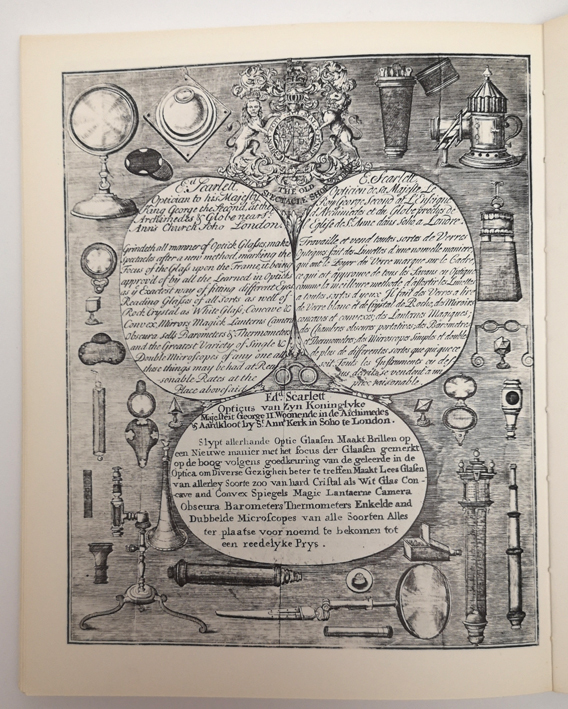 THE OLD
SPECTACLE SHOP
Ed. Scarlett,
Optician to his Majesty
King George the Second, at the
Archimedes & Globe near St.
Ann's Church, Soho London.
Grindeth all manner of Optick Glasses, makes
Spectacles after a new method, marking the
Focus of the Glass upon the Frame, it being
approv'd of by all the Learned in Opticks
as ye Exactest way of fitting different Eyes
Reading Glasses of all Sorts as well of
Rock Crystal as White Glass, Concave &
Convex Mirrors, Magick Lanterns Camera
Obscura's, Barometers & Thermometers
and the Greatest Variety of Single &
Double Microscopes of any one all
thse things may be had at Rea-
sonable Rates at the
Place abovesaid.
E. Scarlett,
Opticien de sa Majeste Le
Roy George Second
d'Archimedes et du Globe proche de
l'Eglise de Ste Anne dans Soho a Londres.
Travaille et vend toutes sortes de Verres
Optiques fait des Lunettes d'une nouvelle maniere
qui met le Foyer de Verre marqué sur le Cadre,
ce qui est approuvé de tous les Savans en Optique
comme la meilleure methode d'assortir les Lunettes
a toutes sortes d'yeux. Il fait des Verres a lire
de Verre blanc et de Crystal de Roche, des Miroirs
concaves et convexes, des Lanternes Magiques,
des Chambres obscures portatives, des Barometres
et Thermometres, des Microscopes Simples et doubles
de plus de differentes sortes que qui que ce
soit. Tous les Instruments
se vendent a un
prix raisonable.
Ed.d Scarlett
Opticus van Zyn Koninglyke
Majesteit George II Woonende in de Archimedes
& Aardkloot by St. Ann' Kerk in Soho te London.
Slypt allerhande Optic Glaasen Maakt Brillen op
een Nieuwe manier met het focus der Glaasen gemerkt
op de boog volgens goedkeuring van de geleerde in de
Optica om Diverse Gezighen beter te treffen Maakt Lees Glasen
van allerley Soorte zoo van hard Cristal als Wit Glas Con-
cave and Convex Spiegels Magic Lantaerne Camera
Obscura Barometers Thermometers Enkelde and
Dubbelde Microscopes van alle Soorten Alles
ter plaatse voor noemd te bekomen tot
een reedelyke Prys.